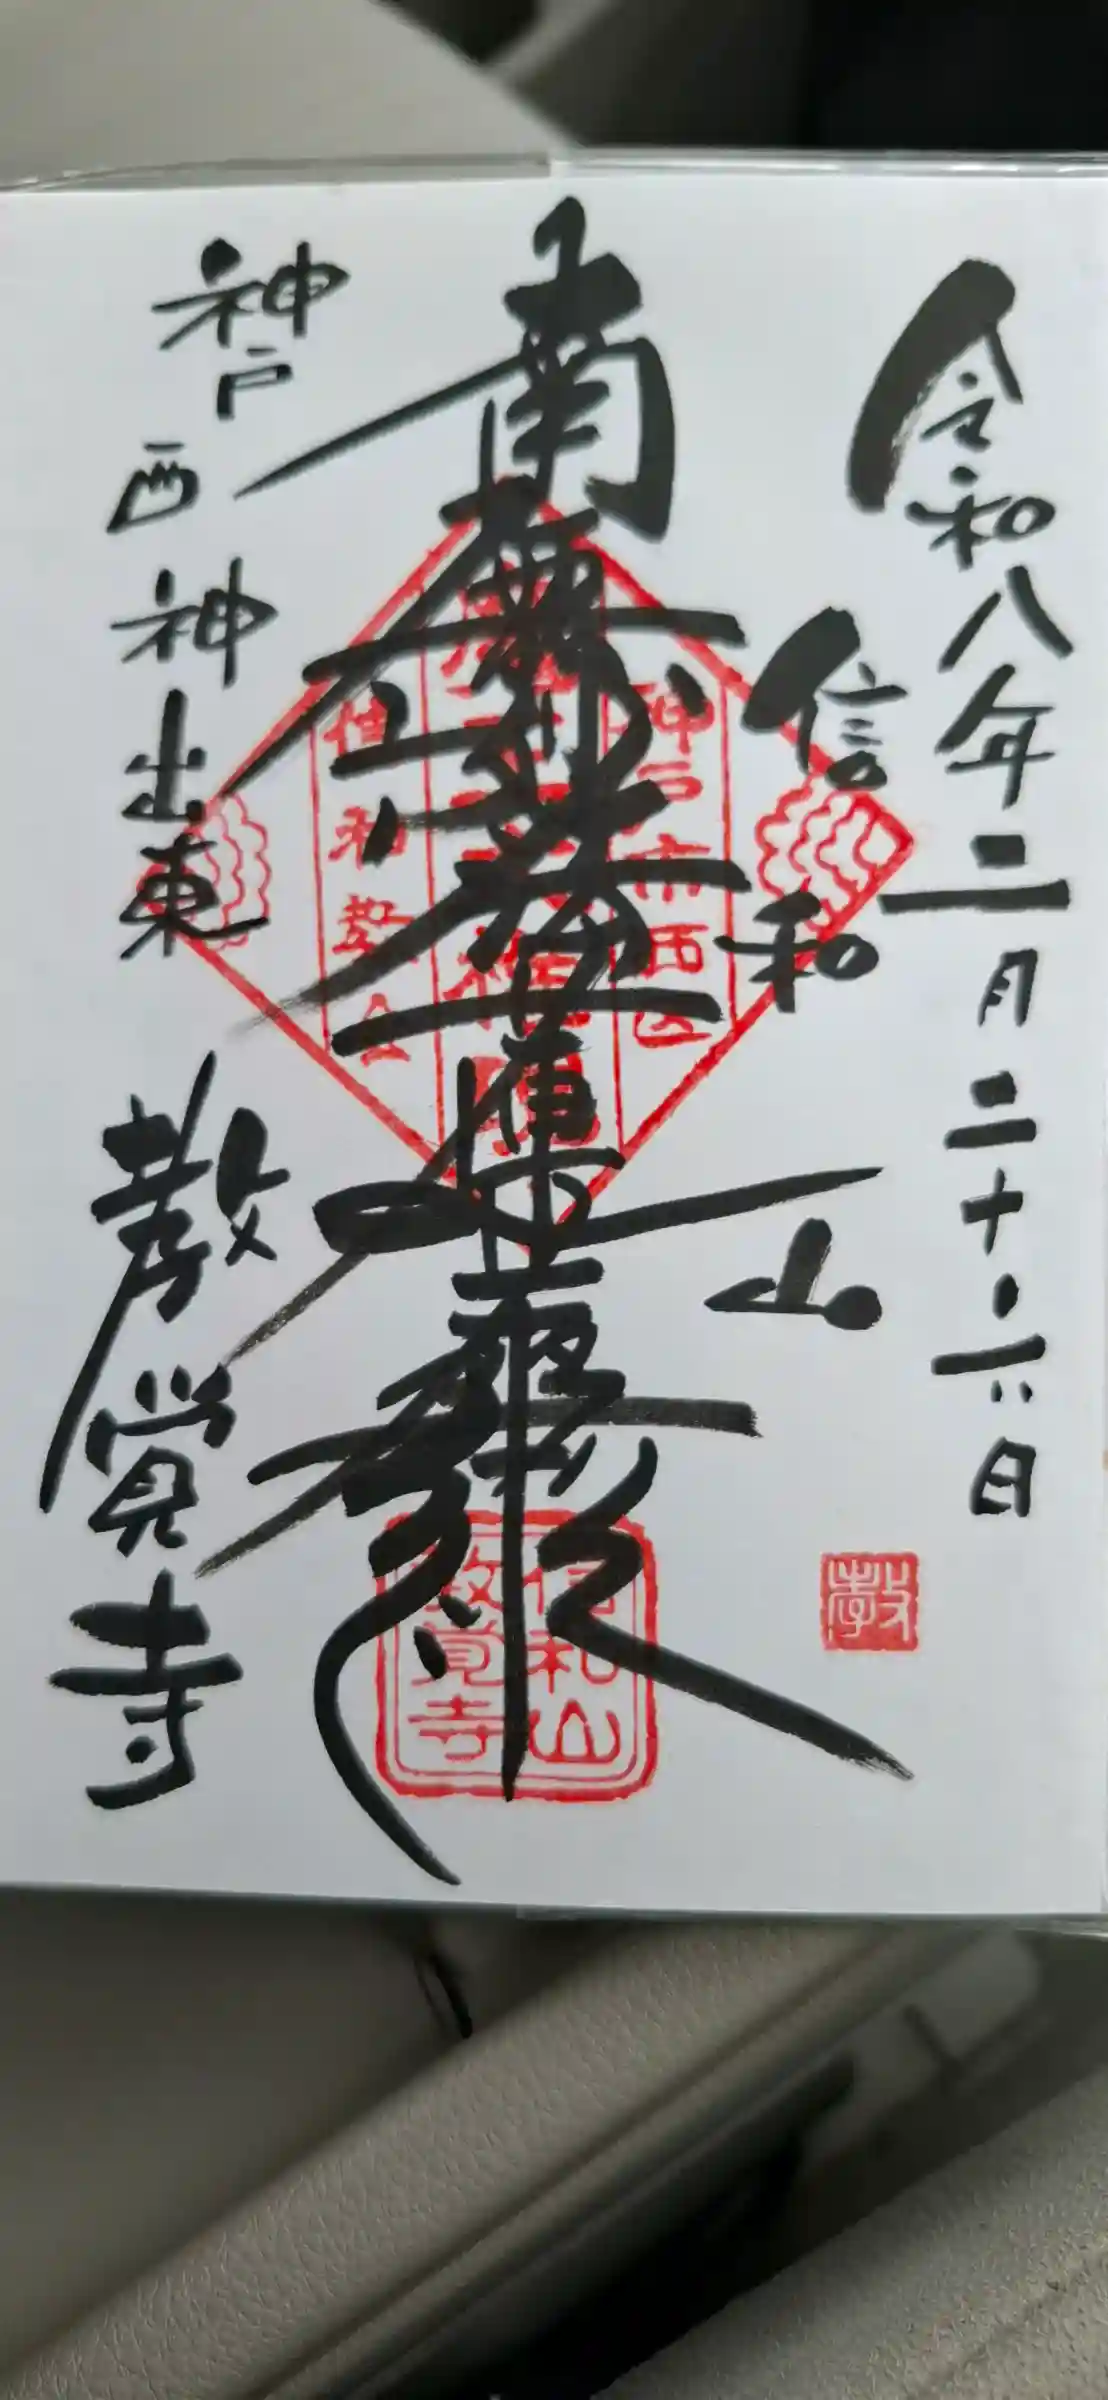 令和八年二月二十六日
信和山
南無妙法蓮華経
神戸西神出東
教覚寺
神戸市西区
信和教会
信和山
教覚寺
教